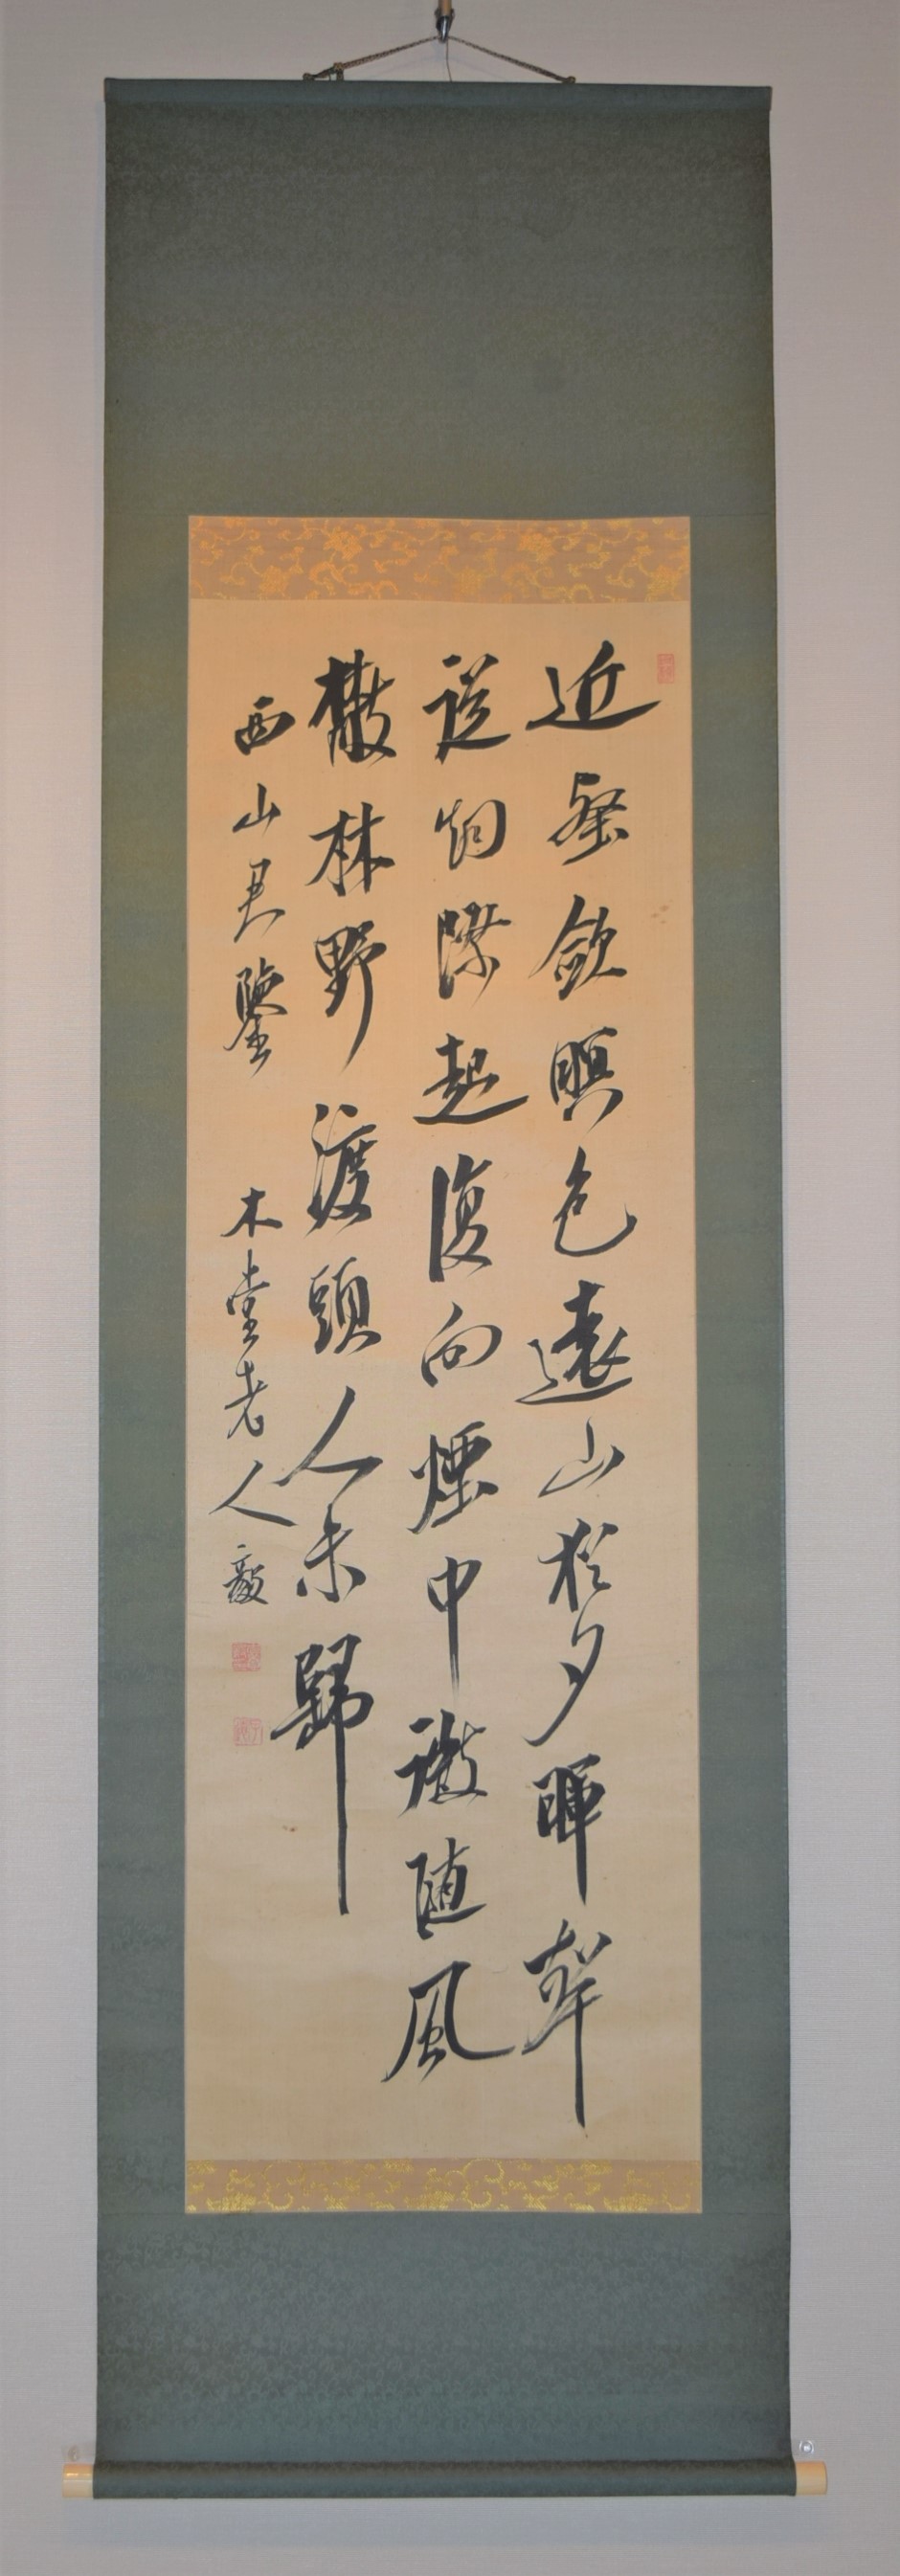 近壑斂暝色遠山於夕暉聲
從何際起復向煙中微随風
散林野渡頭人未歸
西山君鑒 木堂老人毅